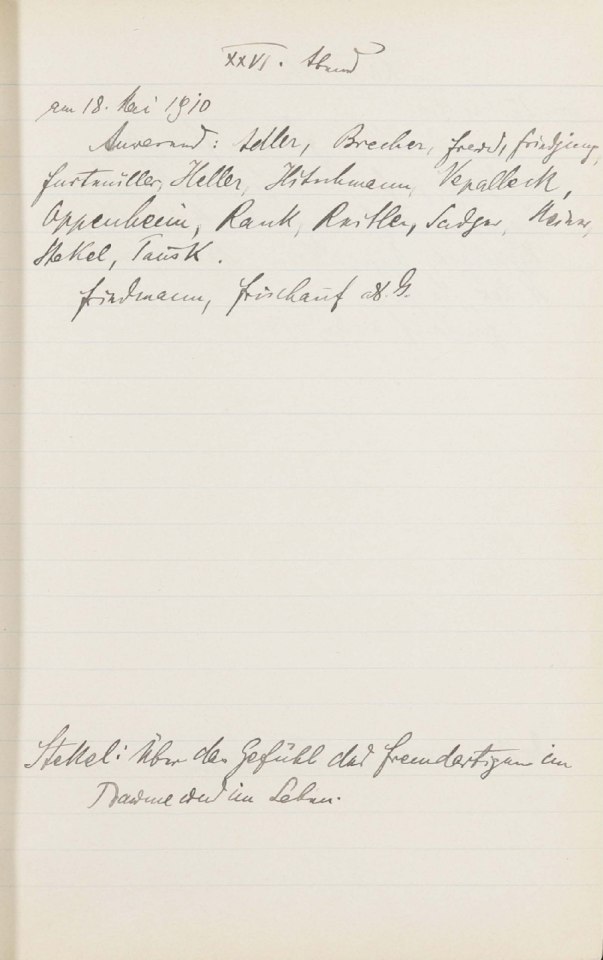 XXVI. Abend
am 18. Mai 1910
Anwesend: Adler, Brecher, Freud, Friedjung,
Furtmüller, Heller, Hitschmann, Nepalleck,
Oppenheim, Rank, Reitler, Sadger, Steiner,
Stekel, Tausk.
Friedmann, Frischauf als G.
Stekel: Über das Gefühl des Fremdartigen im
Traume und im Leben.